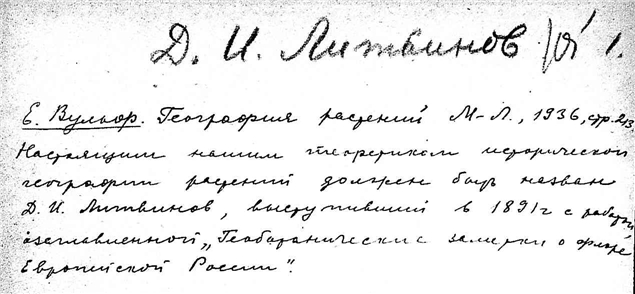 Д. И. Литвинов 1.
Е. Вульф. География растений М-Л., 1936, стр. 213
Настоящим нашим теоретиком исторической
географии растений должен быть назван
Д. И. Литвинов, выступивший в 1891г с работой
озаглавленной „Геоботанические заметки о флоре
Европейской России".